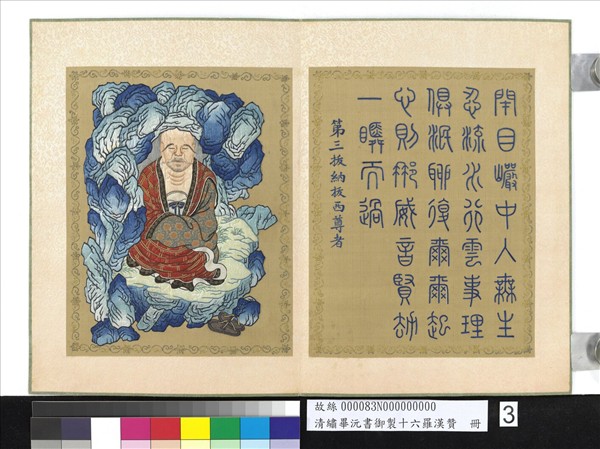 閉目巖中入無生
忍流水行雲事理
俱泯聊復爾爾起
心則那威音賢劫
一瞬而過
第三拔納拔西尊者
故絲 000083N000000000
清繡畢沅書御製十六羅漢贊 冊
3